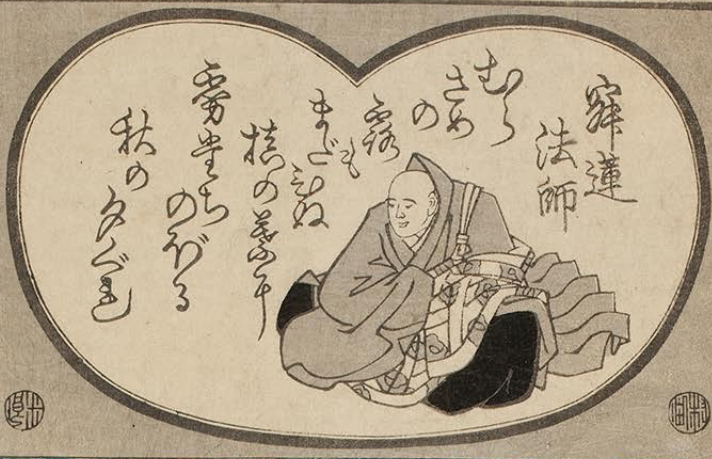 寂蓮
法師
むら
さめ
の
露
も
まだひぬ
槙の葉に
霧たち
のぼる
秋の
夕ぐれ